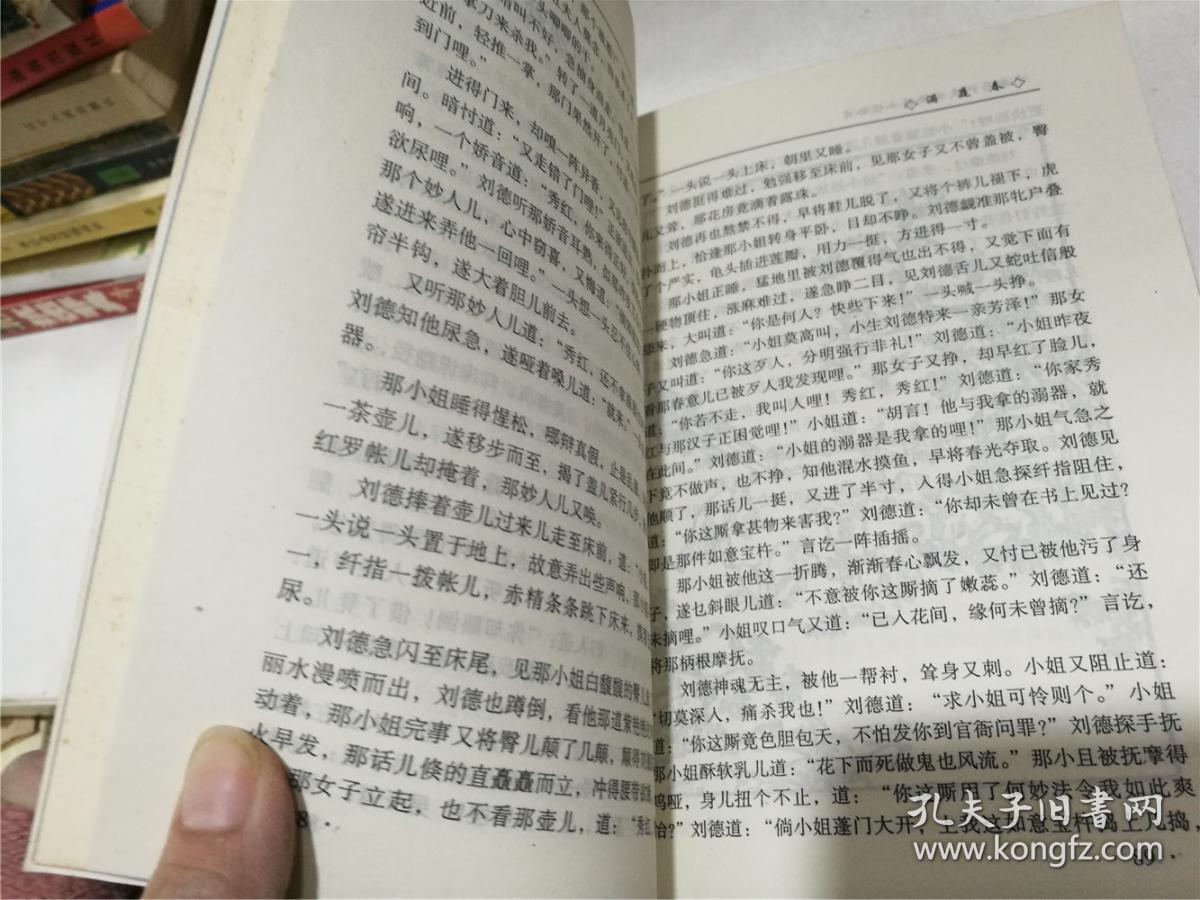 拿刀来杀我。”转了一道
近前，轻推一掌，那门果然开了
到门哩。”
进得门来，却嗅一阵异香
间。暗忖道：“又走错了门哩！”正欲
响，一个娇音道：“秀红，你来得正
欲尿哩。”刘德听那娇音耳熟，似
那个妙人儿，心中窃喜，又悔道：
遂进来弄他一回哩。”一头想一头忍不住
帘半钩，遂大着胆儿前去。
又听那妙人儿道：“秀红，还不拿
刘德知他尿急，遂哑着嗓儿道：“就来。”
器。
那小姐睡得惺松，哪辩真假，止是
一茶壶儿，遂移步而至，揭了盖儿紧行几步
红罗帐儿却掩着，那妙人儿又唤。
刘德捧着壶儿过来儿走至床前，道：
一头说一头置于地上，故意弄出些声响，那小
一，纤指一拨帐儿，赤精条条跳下床来，
尿。
刘德急闪至床尾，见那小姐白馥馥的臀儿
丽水漫喷而出，刘德也蹲倒，看他那道紫艳
动着，那小姐完事又将臀儿颠了几颠，颠得刘
火早发，那话儿倏的直矗矗而立，冲得腰带
那女子立起，也不看那壶儿，道：“秀红
8·
满庭春
了。”一头说一头上床，朝里又睡。
刘德挺得难过，勉强移至床前，见那女子又不曾盖被，臀
儿又耸，那花房竟滴着露珠。
刘德再也熬禁不得，早将鞋儿脱了，又将个裤儿褪下，虎
扑而上，恰逢那小姐转身平卧，目却不睁。刘德觑准那牝户叠
了个严实，龟头插进莲瓣，用力一挺，方进得一寸。
那小姐正睡，猛地里被刘德覆得气也出不得，又觉下面有
一硬物顶住，涨麻难过，遂急睁二目，见刘德舌儿又蛇吐信般
来，大叫道：“你是何人？快些下来！”一头喊一头挣。
刘德急道：“小姐莫高叫，小生刘德特来一亲芳泽！”那女
子又叫道：“你这歹人，分明强行非礼！”刘德道：“小姐昨夜
看那春意儿已被歹人我发现哩。”那女子又挣，却早红了脸儿，
道：“你若不走，我叫人哩！秀红，秀红！”刘德道：“你家秀
红与那汉子正困觉哩！”小姐道：“胡言！他与我拿的溺器，就
在此间。”刘德道：“小姐的溺器是我拿的哩！”那小姐气急之
下竟不做声，也不挣，知他混水摸鱼，早将春光夺取。刘德见
他顺了，那话儿一挺，又进了半寸，入得小姐急探纤指阻住，
道：“你这厮拿甚物来害我？”刘德道：“你却未曾在书上见过？
即是那件如意宝杵。”言讫一阵插摇。
那小姐被他这一折腾，渐渐春心飘发，又忖已被他污了身
子，遂乜斜眼儿道：“不意被你这厮摘了嫩蕊。”刘德道：“还
未摘哩。”小姐叹口气又道：“已入花间，缘何未曾摘？”言讫，
将那柄根摩抚。
刘德神魂无主，被他一帮衬，耸身又刺。小姐又阻止道：
“切莫深入，痛杀我也！”刘德道：“求小姐可怜则个。”小姐
道：“你这厮竟色胆包天，不怕发你到官衙问罪？”刘德探手抚
那小姐酥软乳儿道：“花下而死做鬼也风流。”那小且被抚摩得
呜哑，身儿扭个不止，道：“你这厮用了何妙法令我如此爽
怡？”刘德道：“倘小姐蓬门大开，
89·
孔夫子旧书网
www.kongfz.com